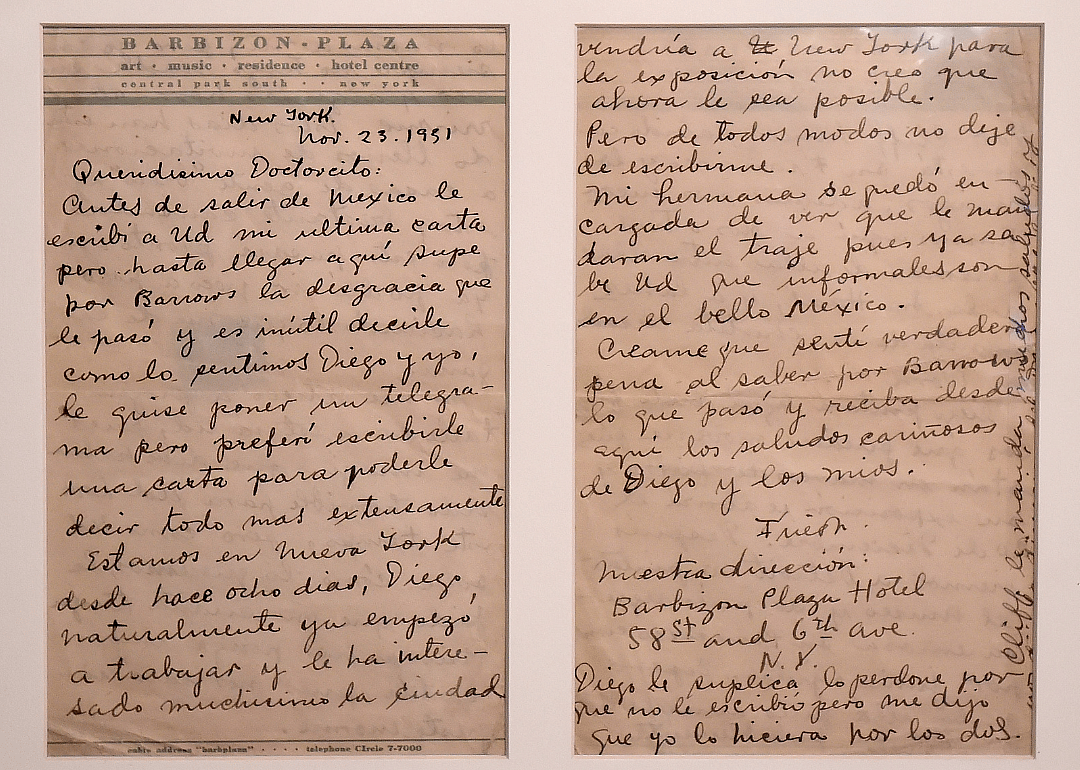 BARBIZON-PLAZA
art · music · residence · hotel centre
central park south · · new york
New York.
Nov. 23. 1931
Queridisimo Doctorcito:
Antes de salir de Mexico le
escribi a Ud mi ultima carta
pero hasta llegar aquí supe
por Barrows la disgracia que
le pasó y es inútil decirle
como lo sentimos Diego y yo,
le quise poner un telegra-
ma pero preferí escribirle
una carta para poderle
decir todo mas extensamente
Estamos en Nueva York
desde hace ocho dias, Diego,
naturalmente ya empezó
a trabajar y le ha intere-
sado muchisimo la ciudad
cable address "barbplaza" · · · · telephone CIrcle 7-7000
vendría a New York para
la exposición no creo que
ahora le sea posible.
Pero de todos modos no deje
de escribirme.
Mi hermana se quedó en-
cargada de ver que le man
daran el traje pues ya sa
be Ud que informales son
en el bello Mexico.
Creame que sentí verdadera
pena al saber por Barrows
lo que pasó y reciba desde
aquí los saludos cariñosos
de Diego y los mios.
Nuestra dirección:
Barbizon Plaza Hotel
58 St and 6th ave.
N.Y.
Diego le suplica lo perdone por
que no le escribió pero me dijo
que yo lo hiciera por los dos.
le manda muchos saludos